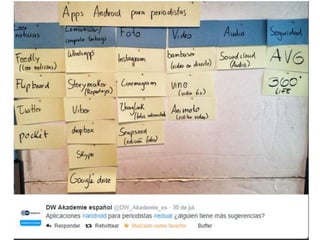 Apps Android para periodistas
Leer noticias
Comunicar/
compartir trabajo
Foto
Video
Audio
Seguridad
Feedly
(leer noticias)
Whatsapp
Instagram
bambuser
(video en directo)
Soundcloud
(Audio)
AVG
Flipboard
Storymaker
(Reportajes)
Cinemagram
vine
(video 6s)
360°
LIFE
Twitter
Viber
ThingLink
(fotos interactivas)
Animoto
(editar video)
pocket
dropbox
Snapseed
(edición fotos)
Skype
Google drive
DW Akademie español @DW_Akademie_es · 30 de jul
Aplicaciones #android para periodistas #edual ¿alguien tiene más sugerencias?
Responder Retwittear Marcado como favorito Buffer